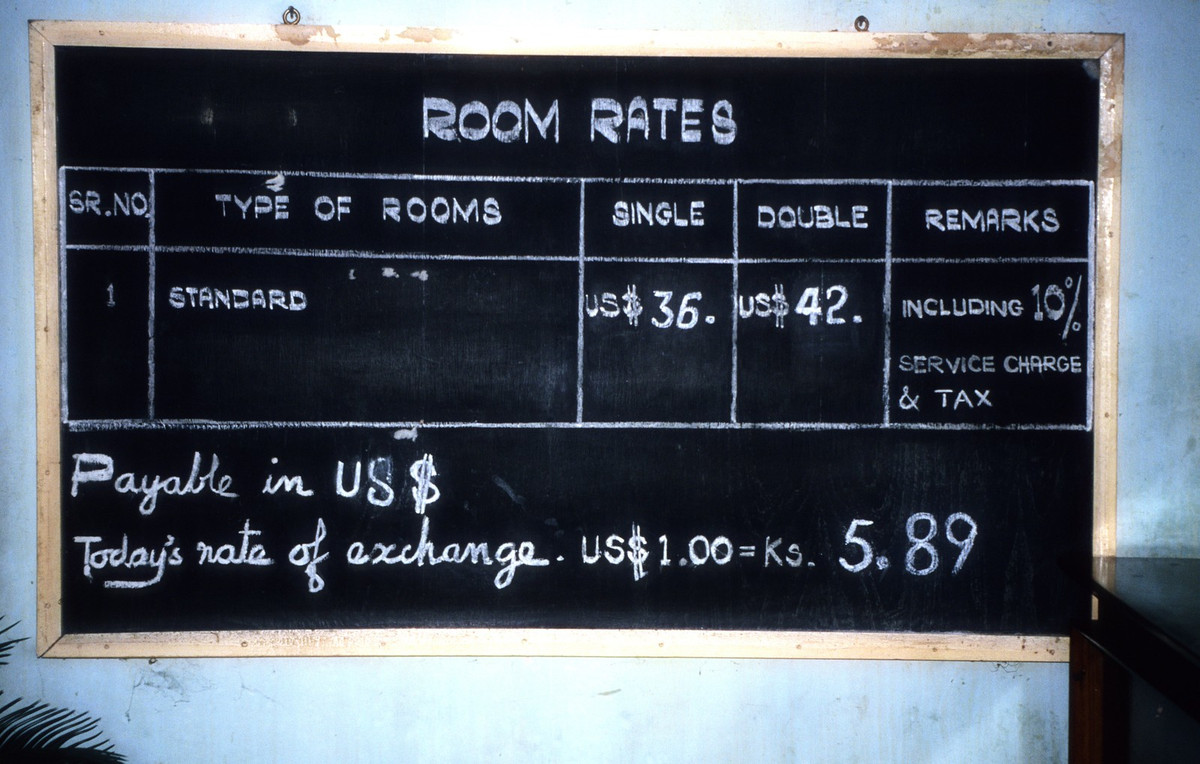 ROOM RATES
SR.NO. TYPE OF ROOMS SINGLE DOUBLE REMARKS
1 STANDARD US$ 36. US$ 42. INCLUDING 10%
SERVICE CHARGE
& TAX
Payable in US $
Today's rate of exchange. US$ 1.00 = Ks. 5.89